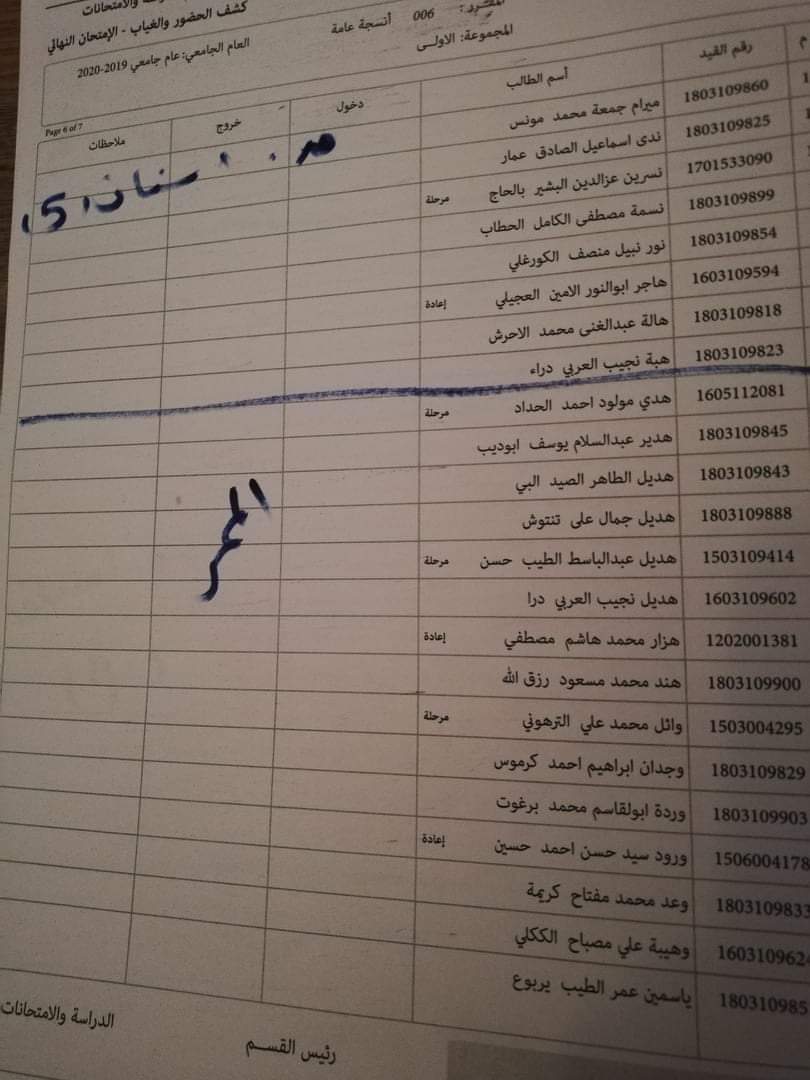 والامتحانات
كشف الحضور والغياب - الإمتحان النهائي
العام الجامعي: عام جامعي 2019-2020
006 أنسجة عامة
المجموعة: الاولى
Page 6 of 7
م رقم القيد أسم الطالب دخول خروج ملاحظات
1803109860 ميرام جمعة محمد مونس
1803109825 ندى اسماعيل الصادق عمار
1701533090 نسرين عزالدين البشير بالحاج مرحلة
1803109899 نسمة مصطفى الكامل الحطاب
1803109854 نور نبيل منصف الكورغلي
1603109594 هاجر ابوالنور الامين العجيلي إعادة
1803109818 هالة عبدالغنى محمد الاحرش
1803109823 هبة نجيب العربي دراء
1605112081 هدي مولود احمد الحداد مرحلة
1803109845 هدير عبدالسلام يوسف ابوديب
1803109843 هديل الطاهر الصيد البي
1803109888 هديل جمال على تنتوش
1503109414 هديل عبدالباسط الطيب حسن مرحلة
الممر
1603109602 هديل نجيب العربي درا
1202001381 هزار محمد هاشم مصطفي إعادة
1803109900 هند محمد مسعود رزق الله
1503004295 وائل محمد علي الترهوني مرحلة
1803109829 وجدان ابراهيم احمد كرموس
1803109903 وردة ابولقاسم محمد برغوت
1506004178 ورود سيد حسن احمد حسين إعادة
1803109833 وعد محمد مفتاح كريمة
160310962 وهيبة علي مصباح الككلي
180310985 ياسمين عمر الطيب يربوع
رئيس القسم
الدراسة والامتحانات